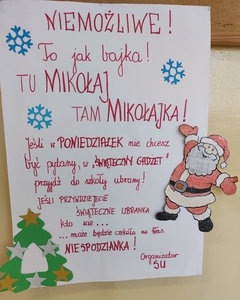 NIEMOŻLIWE!
To jak bajka!
TU MIKOŁAJ
TAM MIKOŁAJKA!
Jeśli w PONIEDZIAŁEK nie chcesz
być pytany, w "ŚWIĄTECZNY GADŻET"
przyjdź do szkoły ubrany!
JEŚLI PRZYJDZIECIE
ŚWIĄTECZNE UBRANKA
kto wie...
...może będzie czekała na Was
NIESPODZIANKA!
Organizator
SU